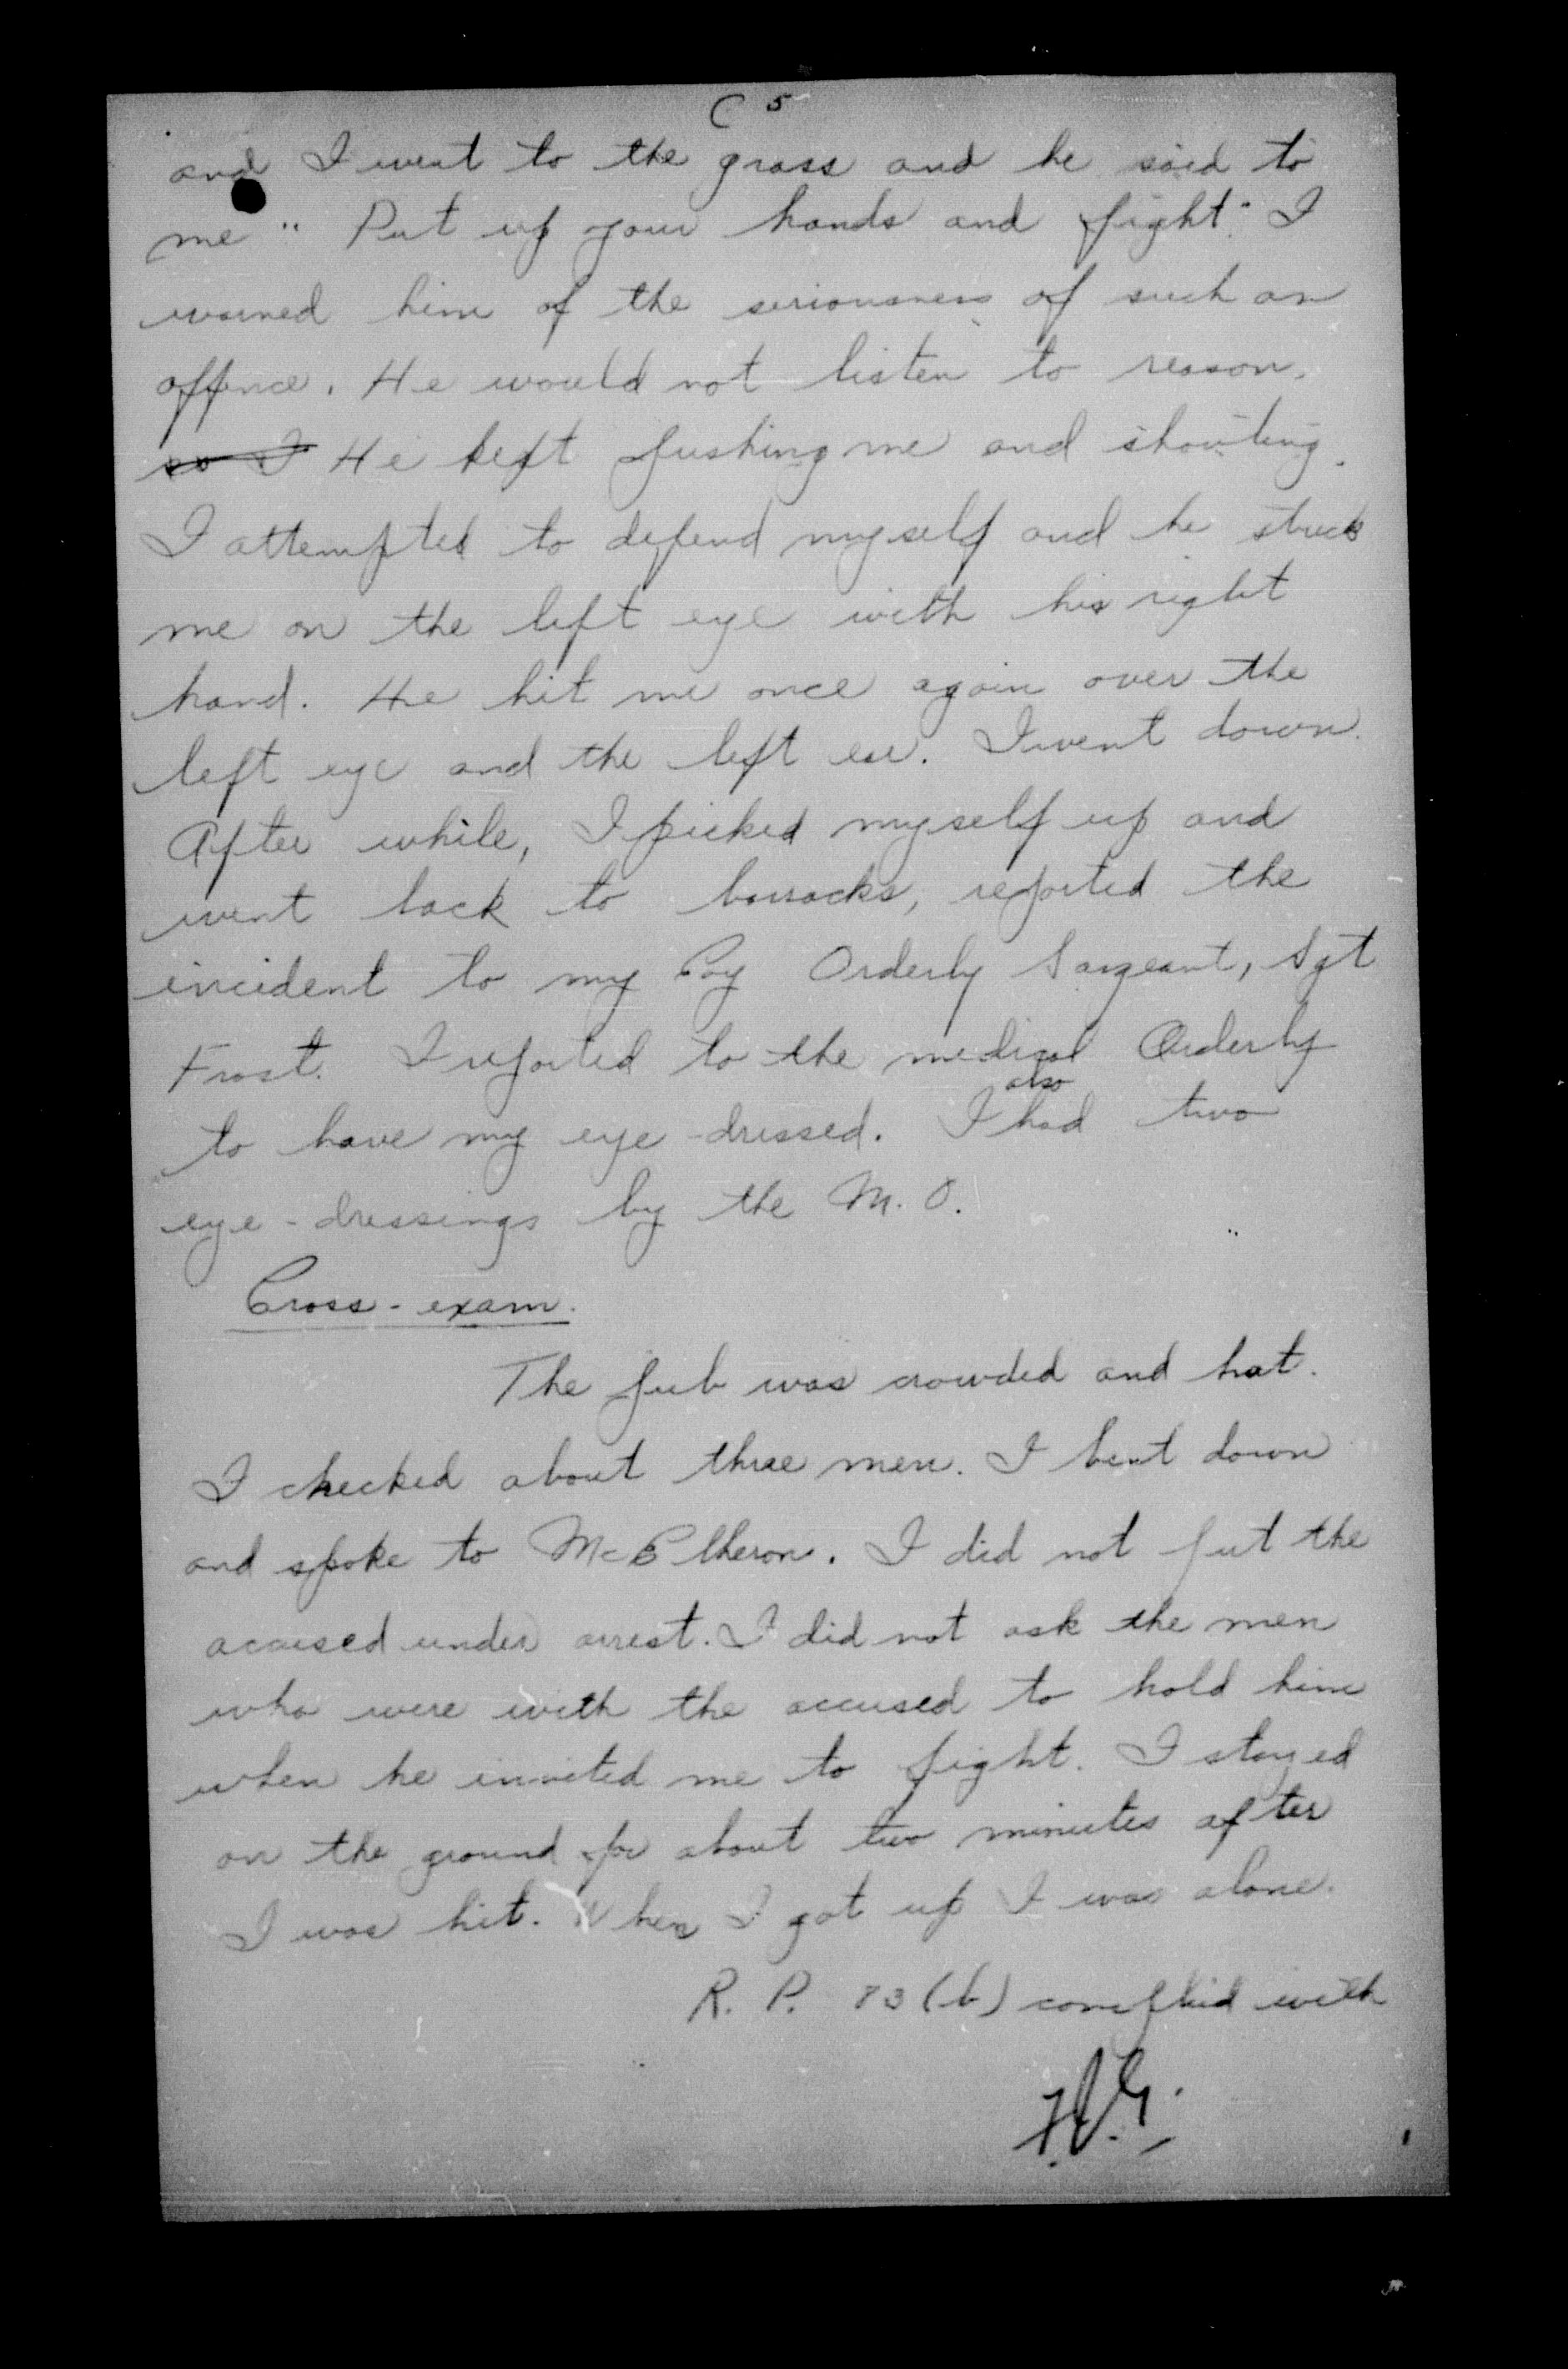 C 5
and I went to the grass and he said to
me " Put up your hands and fight" I
warned him of the seriousness of such an
offence. He would not listen to reason.
so I He kept pushing me and shouting.
I attempted to defend myself and he struck
me on the left eye with his right
hand. He hit me once again over the
left eye and the left ear. I went down.
After while, I picked myself up and
went back to barracks, reported the
incident to my Coy Orderly Sargeant, Sgt
Frost. I reported to the medical Orderly
to have my eye-dressed. I also had two
eye-dressings by the M.O.
Cross-exam.
The pub was crowded and hot.
I checked about three men. I bent down
and spoke to McElheron. I did not put the
accused under arrest. I did not ask the men
who were with the accused to hold him
when he invited me to fight. I stayed
on the ground for about two minutes after
I was hit. When I got up I was alone.
R. P. 83 (b) complied with